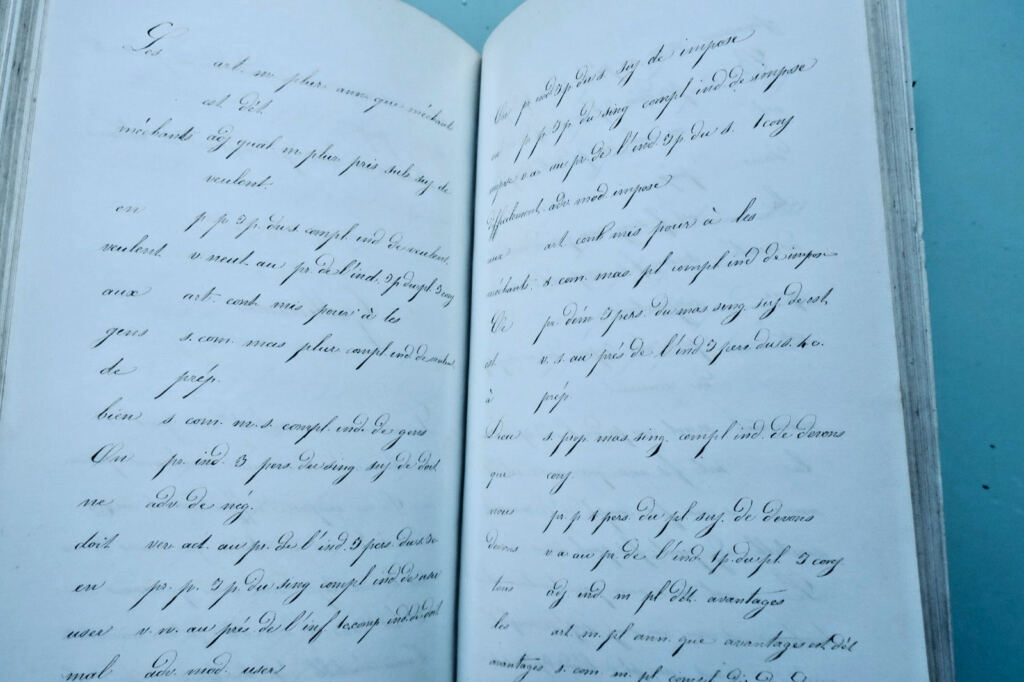 Les art. m. plur. ann. que méchants
est dét.
méchants adj. qual. m. plur. pris subs. suj. de
veulent.
en p. p. 3 p. du s compl. ind. de veulent.
veulent v. neut. au pr. de l'ind. 3 p du pl. 3 conj
aux art. cont. mis pour à les
gens s. com. mas plur compl ind de
de prép.
bien s com. m. s. compl. ind. de gens
On pr. ind. 3 pers. du sing. suj. de doit
ne adv. de nég.
doit ver. act. au pr. de l'ind. 3 pers. du s. 3e
en pr. p. 3 p. du sing compl ind. de user
user v. n. au prés. de l'inf 1e. comp ind. de doit
mal adv. mod. user
On pr ind 3 p. du s. suj de impose
en p p. 3 p. du sing compl ind. de impose
impose v. a. au pr. de l'ind. 3 p du s. 1 conj
adv. mod. impose
aux art cont mis pour à les
méchants. s. com. mas. pl compl ind de impose
Ce pr. dém 3 pers. du mas sing. suj de est.
est v. s. au prés de l'ind 3 pers. du s. 4 c.
à prép
Dieu s. prop. mas. sing. compl ind. de devons
que conj
nous pr. p 1 pers. du pl suj. de devons
devons v a au pr. de l'ind. 1 p. du pl. 3 conj
tous adj ind. m pl dét. avantages
les art. m. pl ann. que avantages est dét
avantages s. com. m. pl compl. d. de